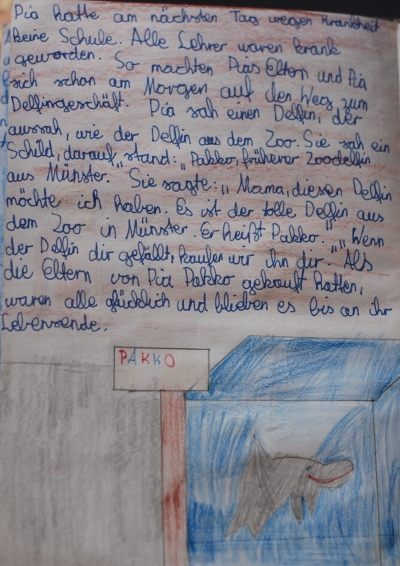 Pia hatte am nächsten Tag wegen Krankheit
keine Schule. Alle Lehrer waren krank
geworden. So machten Pias Eltern und Pia
sich schon am Morgen auf den Weg zum
Delfingeschäft. Pia sah einen Delfin, der
aussah, wie der Delfin aus dem Zoo. Sie sah ein
Schild, darauf stand: „Pakko, früherer Zoodelfin
aus Münster." Sie sagte: „Mama, diesen Delfin
möchte ich haben. Es ist der tolle Delfin aus
dem Zoo in Münster. Er heißt Pakko." „Wenn
der Delfin dir gefällt, kaufen wir ihn dir." Als
die Eltern von Pia Pakko gekauft hatten,
waren alle glücklich und blieben es bis an ihr
Lebensende.
PAKKO